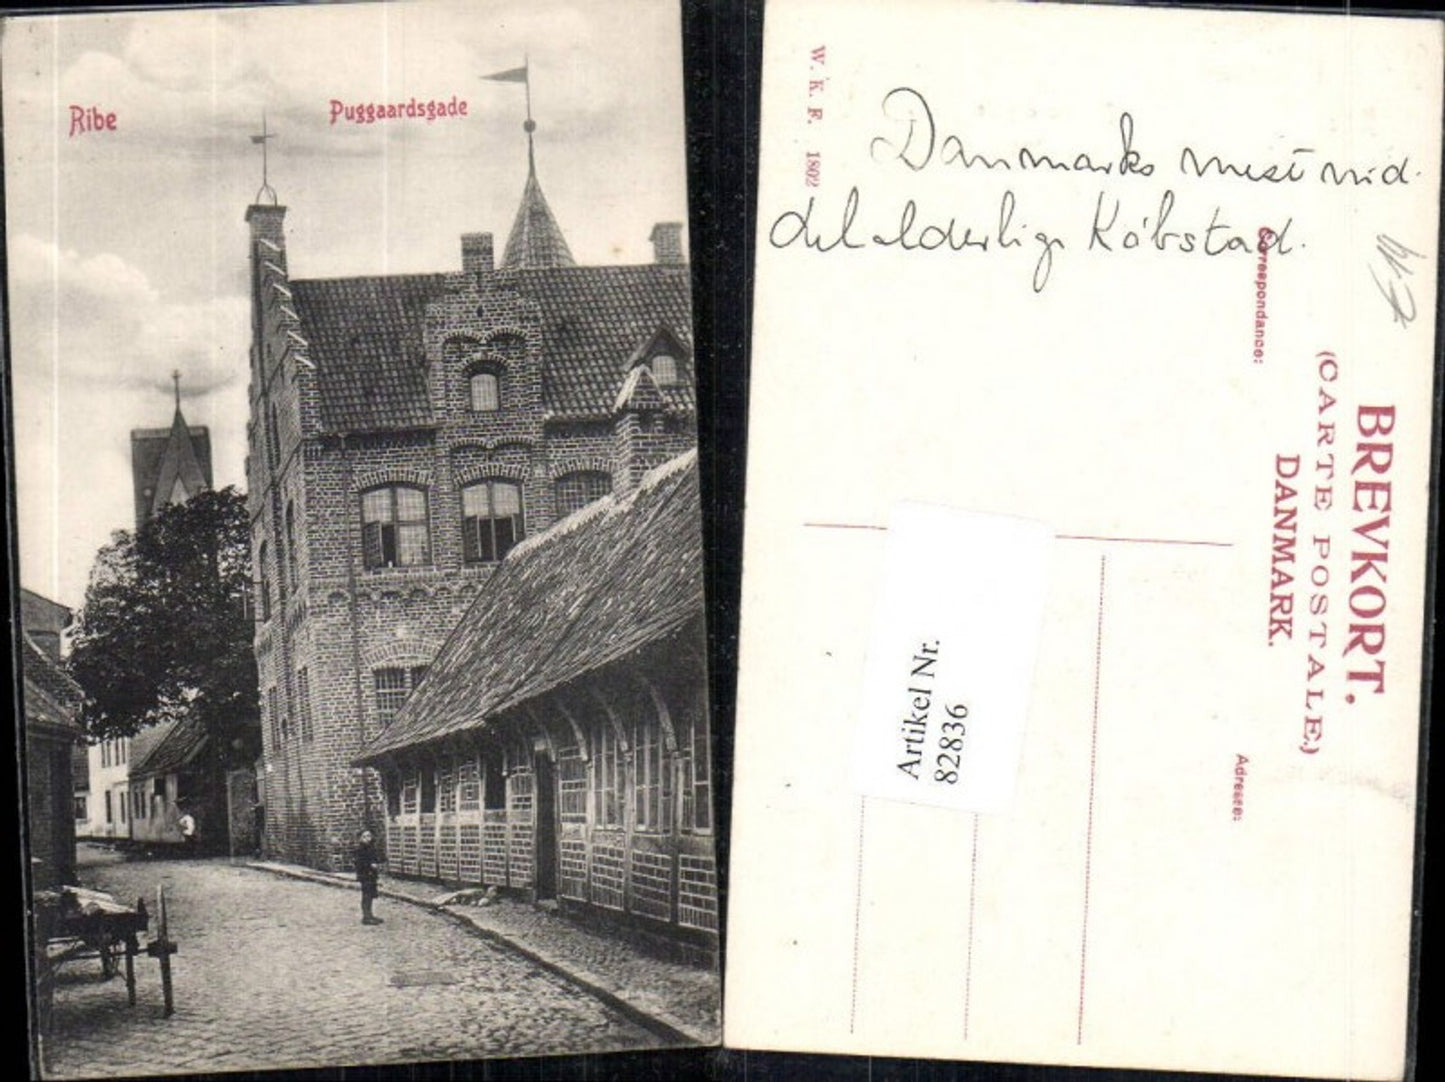 Ribe
Puggaardsgade
W. K. F. 1802
Danmarks mest mid-
delalderlige Købstad.
Correspondance:
BREVKORT.
(CARTE POSTALE)
DANMARK.
Adresse:
Artikel Nr.
82836